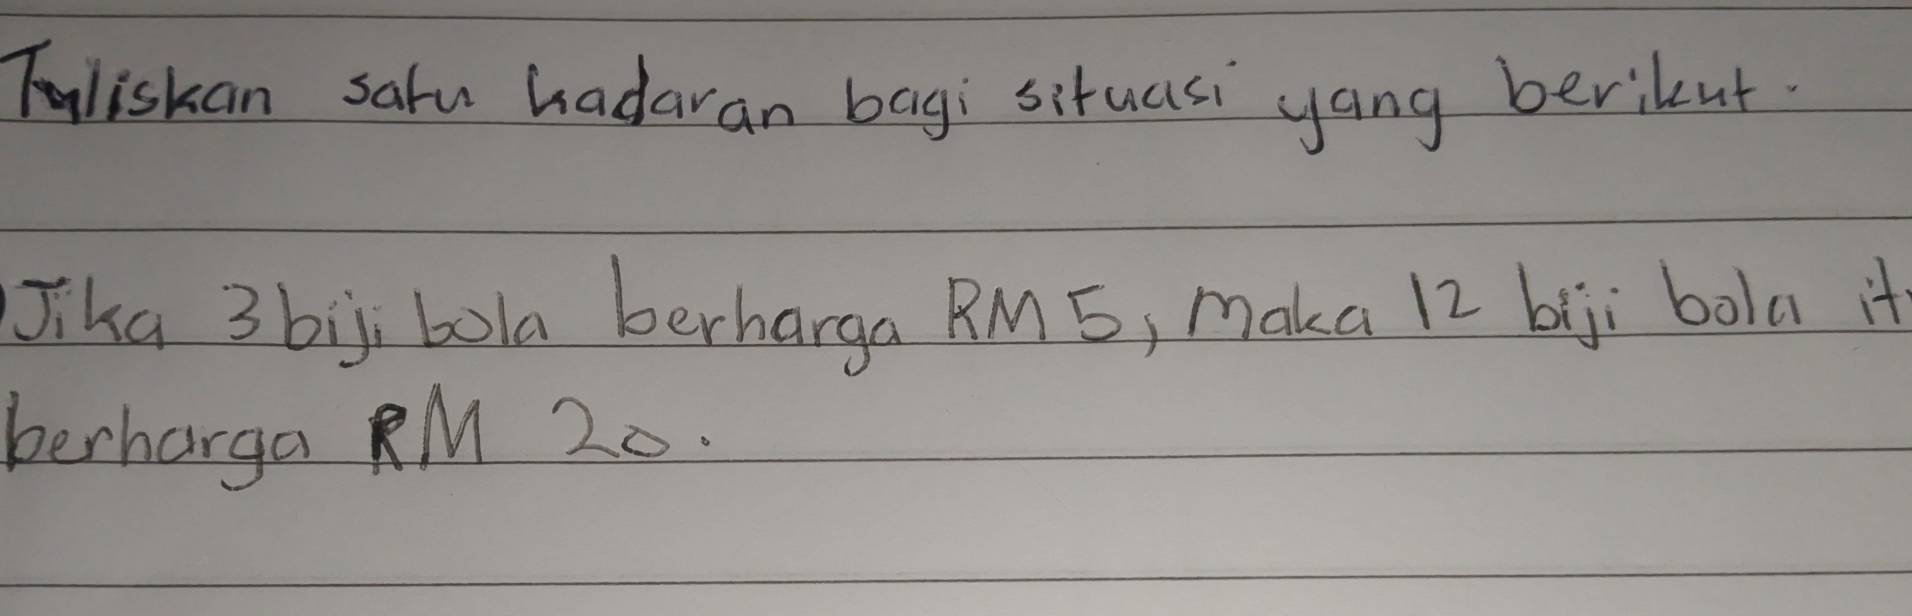 Tuliskan satu kadaran bagi situasi yang berikut.
Jika 3 biji bola berharga RM5, maka 12 biji bola it
berharga RM 20.